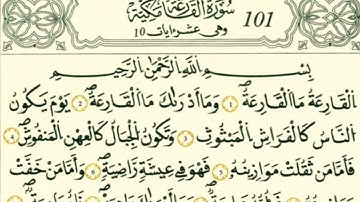 سُورَةُ الْقَارِعَةِ مَكِّيَّةٌ 101
وَهِيَ عَشَرَ اٰيَاتٍ 10
بِسْمِ اللّٰهِ الرَّحْمٰنِ الرَّحِيمِ
اَلْقَارِعَةُ مَا الْقَارِعَةُ ١ وَمَا اَدْرٰيكَ مَا الْقَارِعَةُ ٢ يَوْمَ يَكُونُ
النَّاسُ كَالْفَرَاشِ الْمَبْثُوثِ ٣ وَتَكُونُ الْجِبَالُ كَالْعِهْنِ الْمَنْفُوشِ ٤
فَاَمَّا مَنْ ثَقُلَتْ مَوَازِينُهُ ٥ فَهُوَ فِي عِيشَةٍ رَاضِيَةٍ ٦ وَاَمَّا مَنْ خَفَّتْ